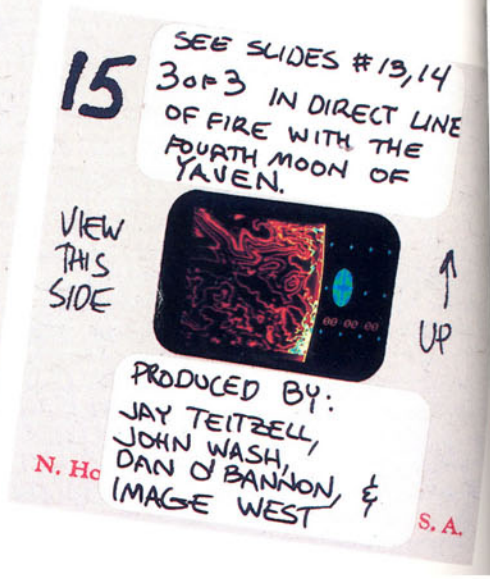 15
SEE SLIDES #13,14
3 OF 3 IN DIRECT LINE
OF FIRE WITH THE
FOURTH MOON OF
YAVEN.
VIEW
THIS
SIDE
00 00 00
UP
PRODUCED BY:
JAY TEITZELL,
JOHN WASH,
DAN O'BANNON, &
IMAGE WEST
N. Ho
S. A.